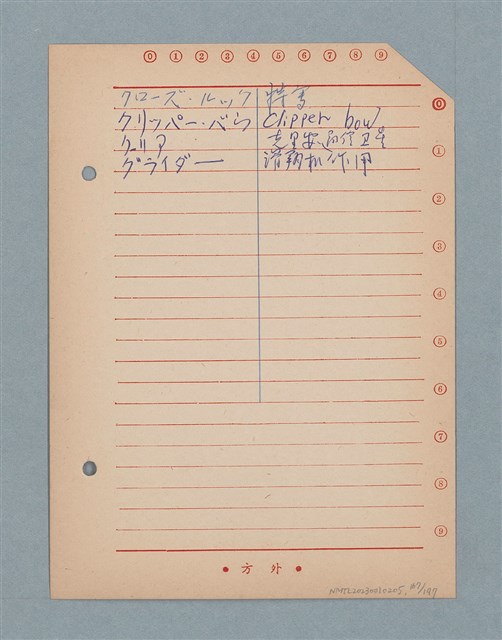 0 1 2 3 4 5 6 7 8 9
クローズ・ルック 特写
クリッパー・バウ Clipper bow
クリア
グライダー 滑翔机作用
0
1
2
3
4
5
6
7
8
9
• 方 外 •
NMTL20230010205, 67/197